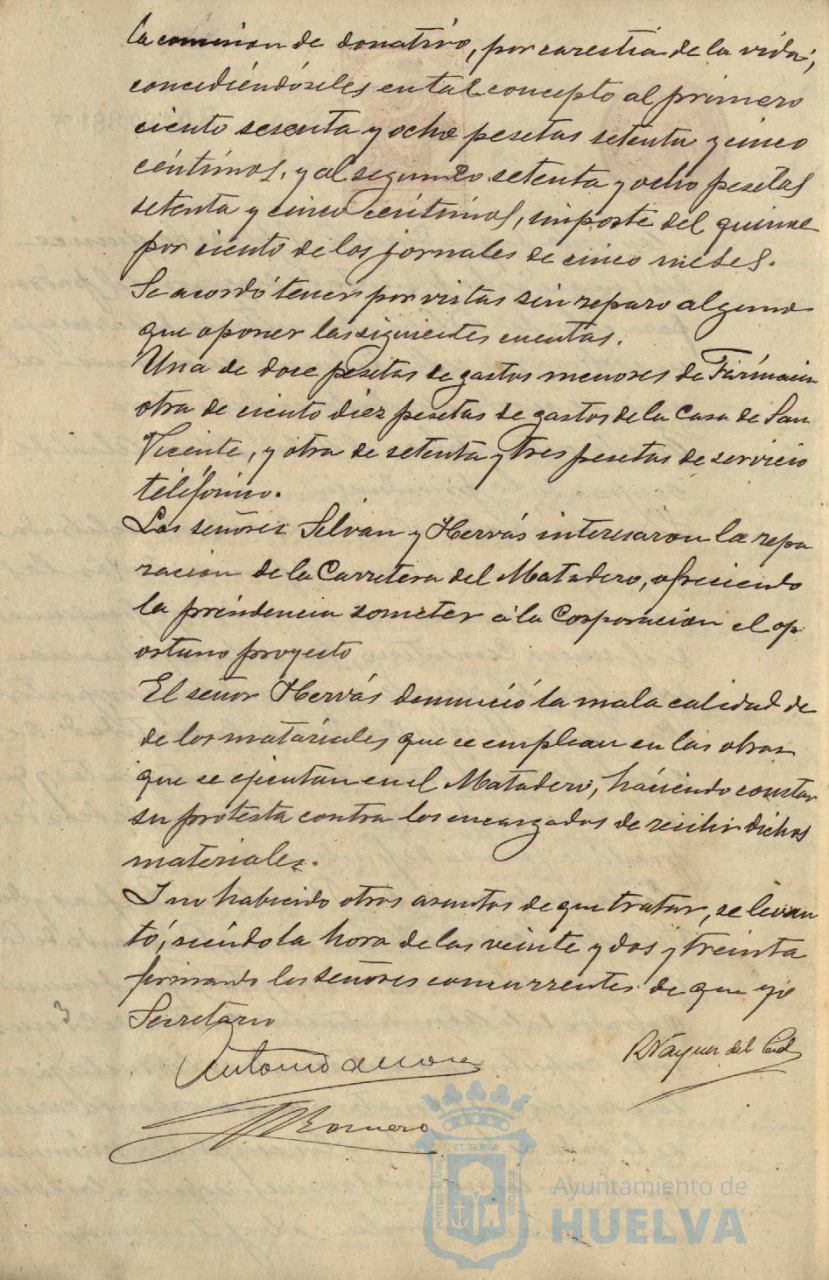 la comision de donativo, por carestia de la vida;
concediéndoseles en tal concepto al primero
ciento sesenta y ocho pesetas setenta y cinco
céntimos, y al segundo setenta y ocho pesetas
setenta y cinco centimos, importe del quince
por ciento de los jornales de cinco meses.
Se acordó tener por vistas sin reparo alguno
que oponer las siguientes cuentas.
Una de doce pesetas de gastos menores de
otra de ciento diez pesetas de gastos de la Casa de San
Vicente, y otra de setenta y tres pesetas de servicio
teléfonico.
Los señores Silvan y Hervás interesaron la repa
racion de la Carretera del Matadero, ofreciendo
la presidencia someter á la Corporacion el op
ortuno proyecto
El señor Hervás denunció la mala calidad de
de los matariales que se emplean en las obras
que se ejecutan en el Matadero, haciendo constar
su protesta contra los encargados de recibir dichos
materiales.
I no habiendo otros asuntos de que tratar, se levan
tó, siendo la hora de las veinte y dos y treinta
firmando los señores concurrentes de que yo
Secretario
3
Antonio de
R Vazquez del
Romero
PORTUS MARIS
ET TERRE
CUSTODIA
Ayuntamiento de
HUELVA